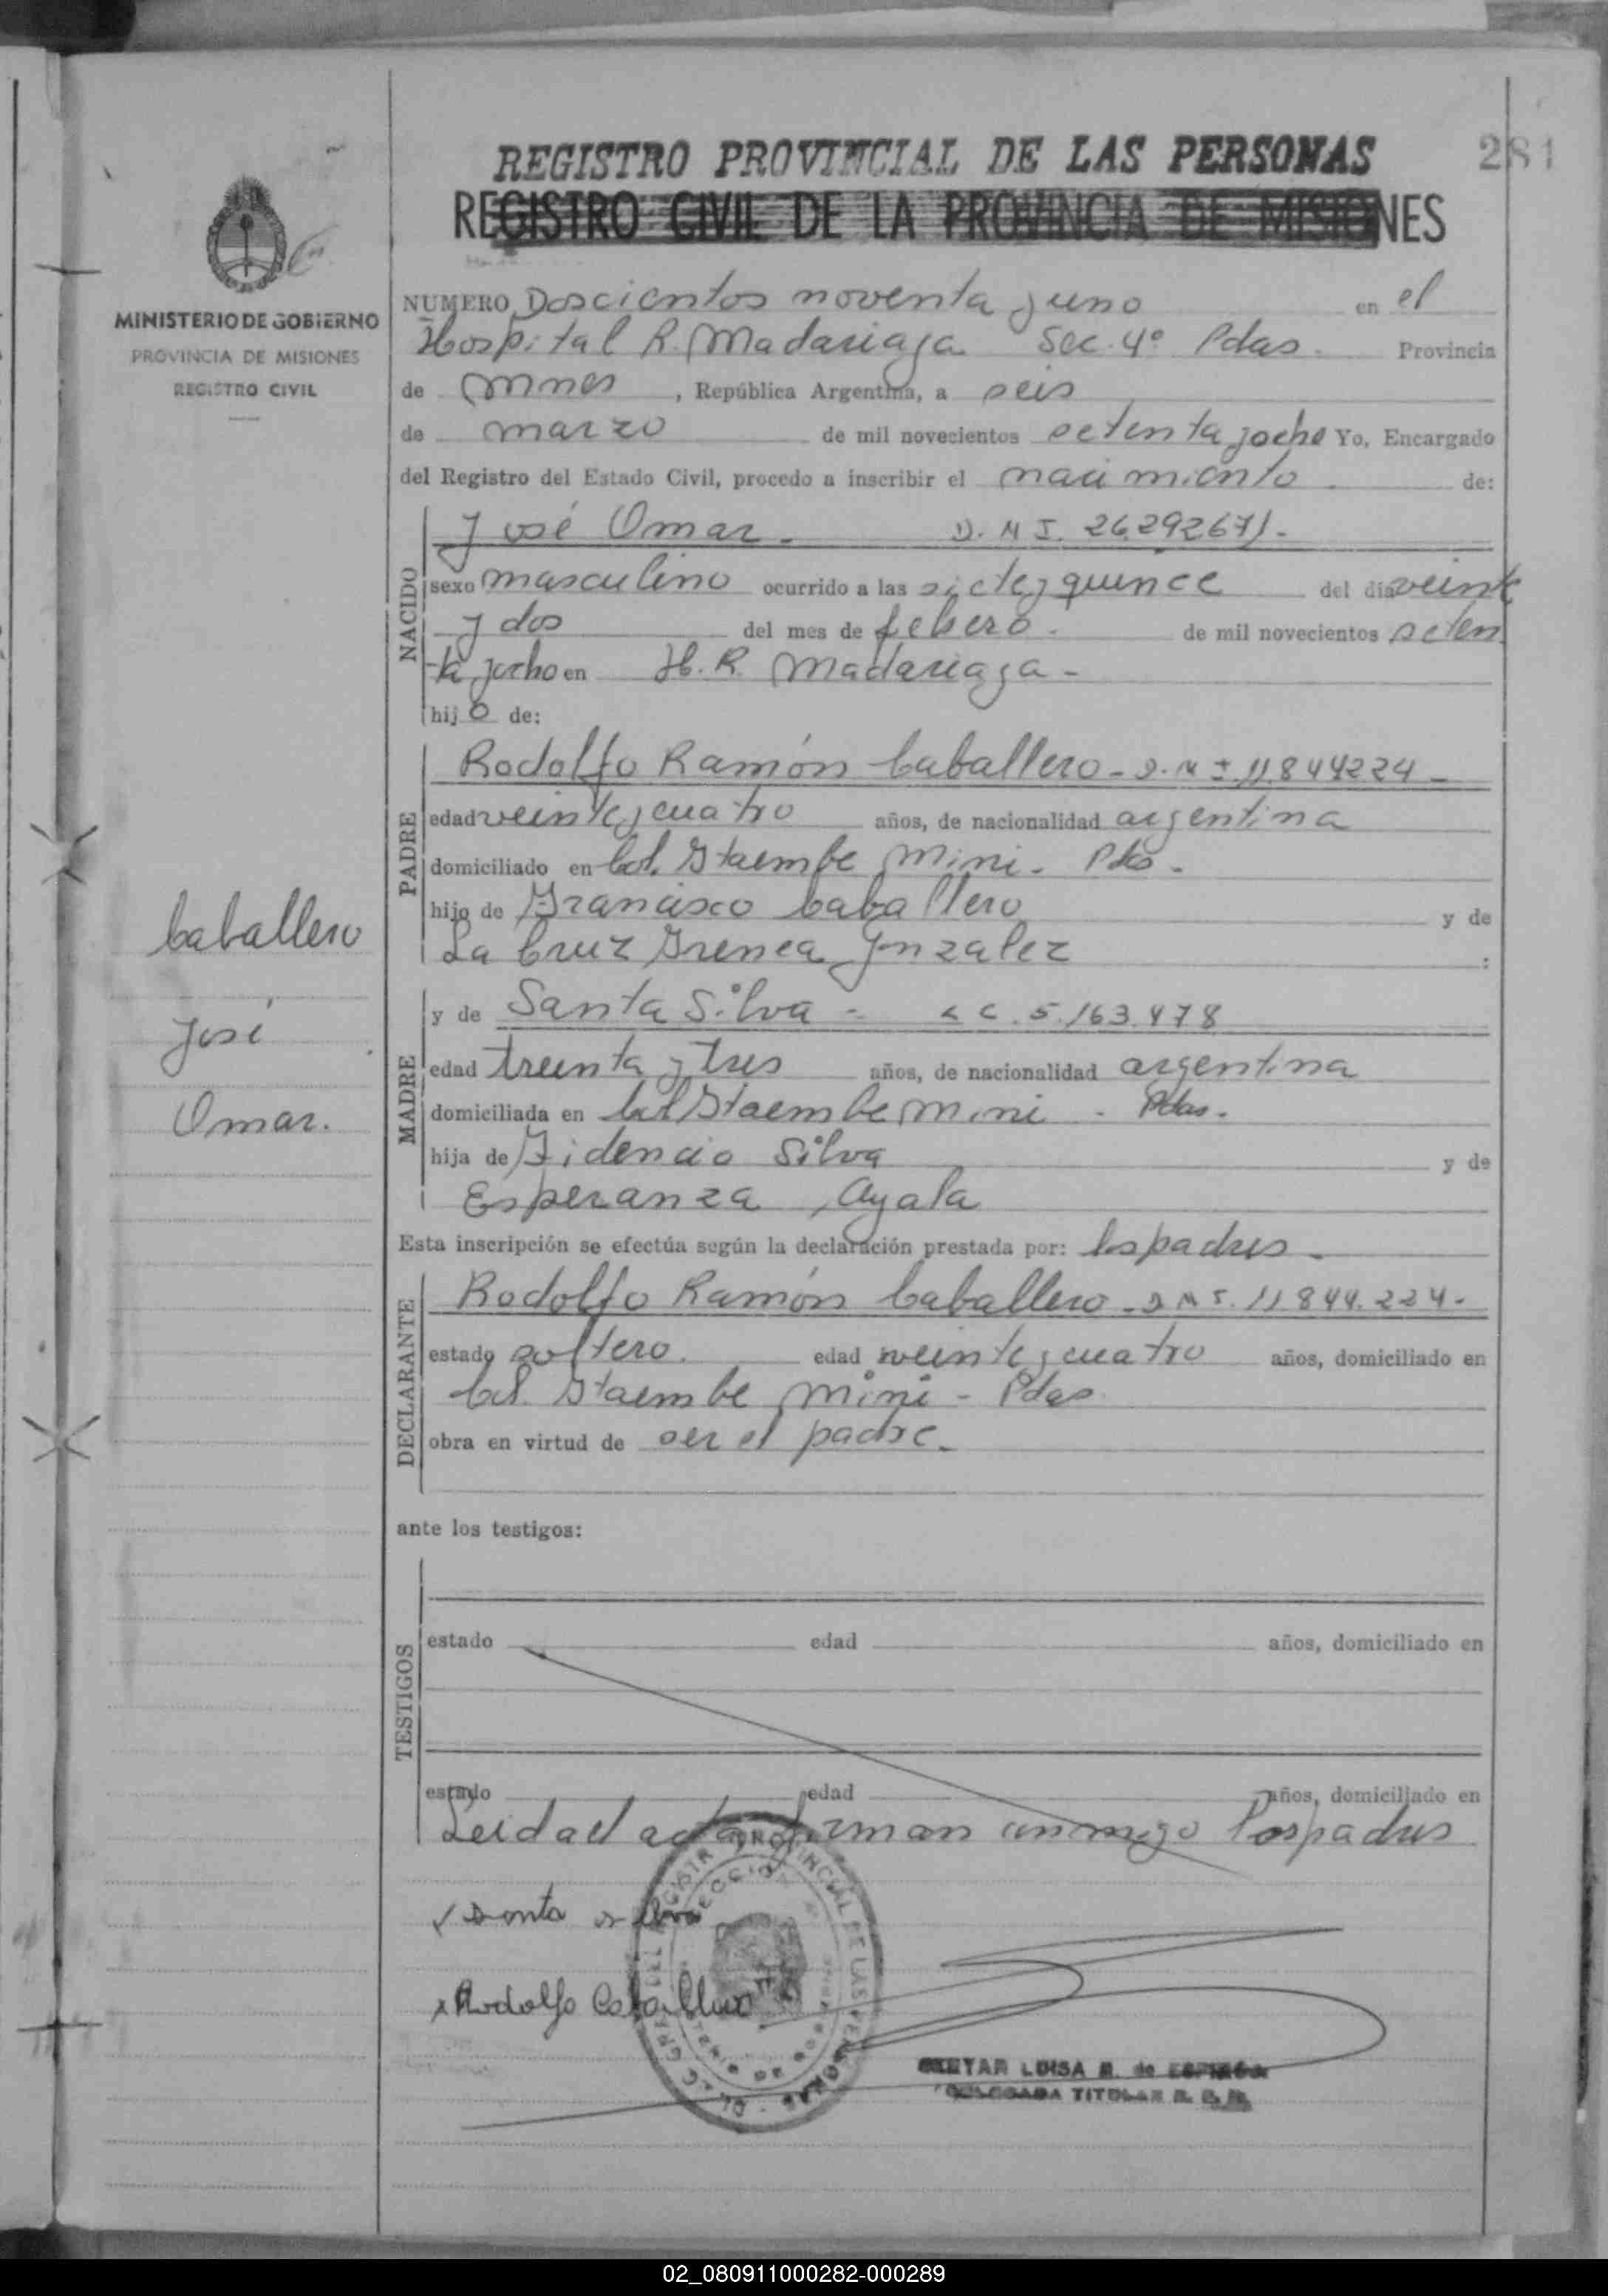 REGISTRO PROVINCIAL DE LAS PERSONAS
281
REGISTRO CIVIL DE LA PROVINCIA DE MISIONES
MINISTERIO DE GOBIERNO
PROVINCIA DE MISIONES
REGISTRO CIVIL
NUMERO Doscientos noventa y uno en el
Hospital R. Madariaga Sec. 4º Pdas. Provincia
de Mnes, República Argentina, a seis
de marzo de mil novecientos setenta y ocho Yo, Encargado
del Registro del Estado Civil, procedo a inscribir el nacimiento de:
NACIDO
José Omar. D. M I. 26292671.-
sexo masculino ocurrido a las siete y quince del dia veinte
y dos del mes de febero. de mil novecientos seten
ta y ocho en H. R. Madariaga -
hijo de:
PADRE
Rodolfo Ramón Caballero - D. M I. 11.844224 -
edad veinte y cuatro años, de nacionalidad argentina
domiciliado en Col. Itaembe Mini - Pdas -
hijo de Francisco Caballero y de
La Cruz Irenea Gonzalez :
Caballero
José
Omar.
MADRE
y de Santa Silva - L C. 5.163.478
edad treinta y tres años, de nacionalidad argentina
domiciliada en Col Itaembe Mini - Pdas.
hija de Fidencio Silva y de
Esperanza Ayala
Esta inscripción se efectúa según la declaración prestada por: los padres -
DECLARANTE
Rodolfo Ramón Caballero - D M I. 11 844.224-
estado soltero. edad veinte y cuatro años, domiciliado en
Col. Itaembe Mini - Pdas
obra en virtud de ser el padre -
ante los testigos:
TESTIGOS
estado edad años, domiciliado en
estado edad años, domiciliado en
Leida el acta firman conmigo los padres
x Santa silva
x Rodolfo Caballero
LUISA E. de ESPINOSA
DELEGADA TITULAR R. P. P.
02_080911000282-000289